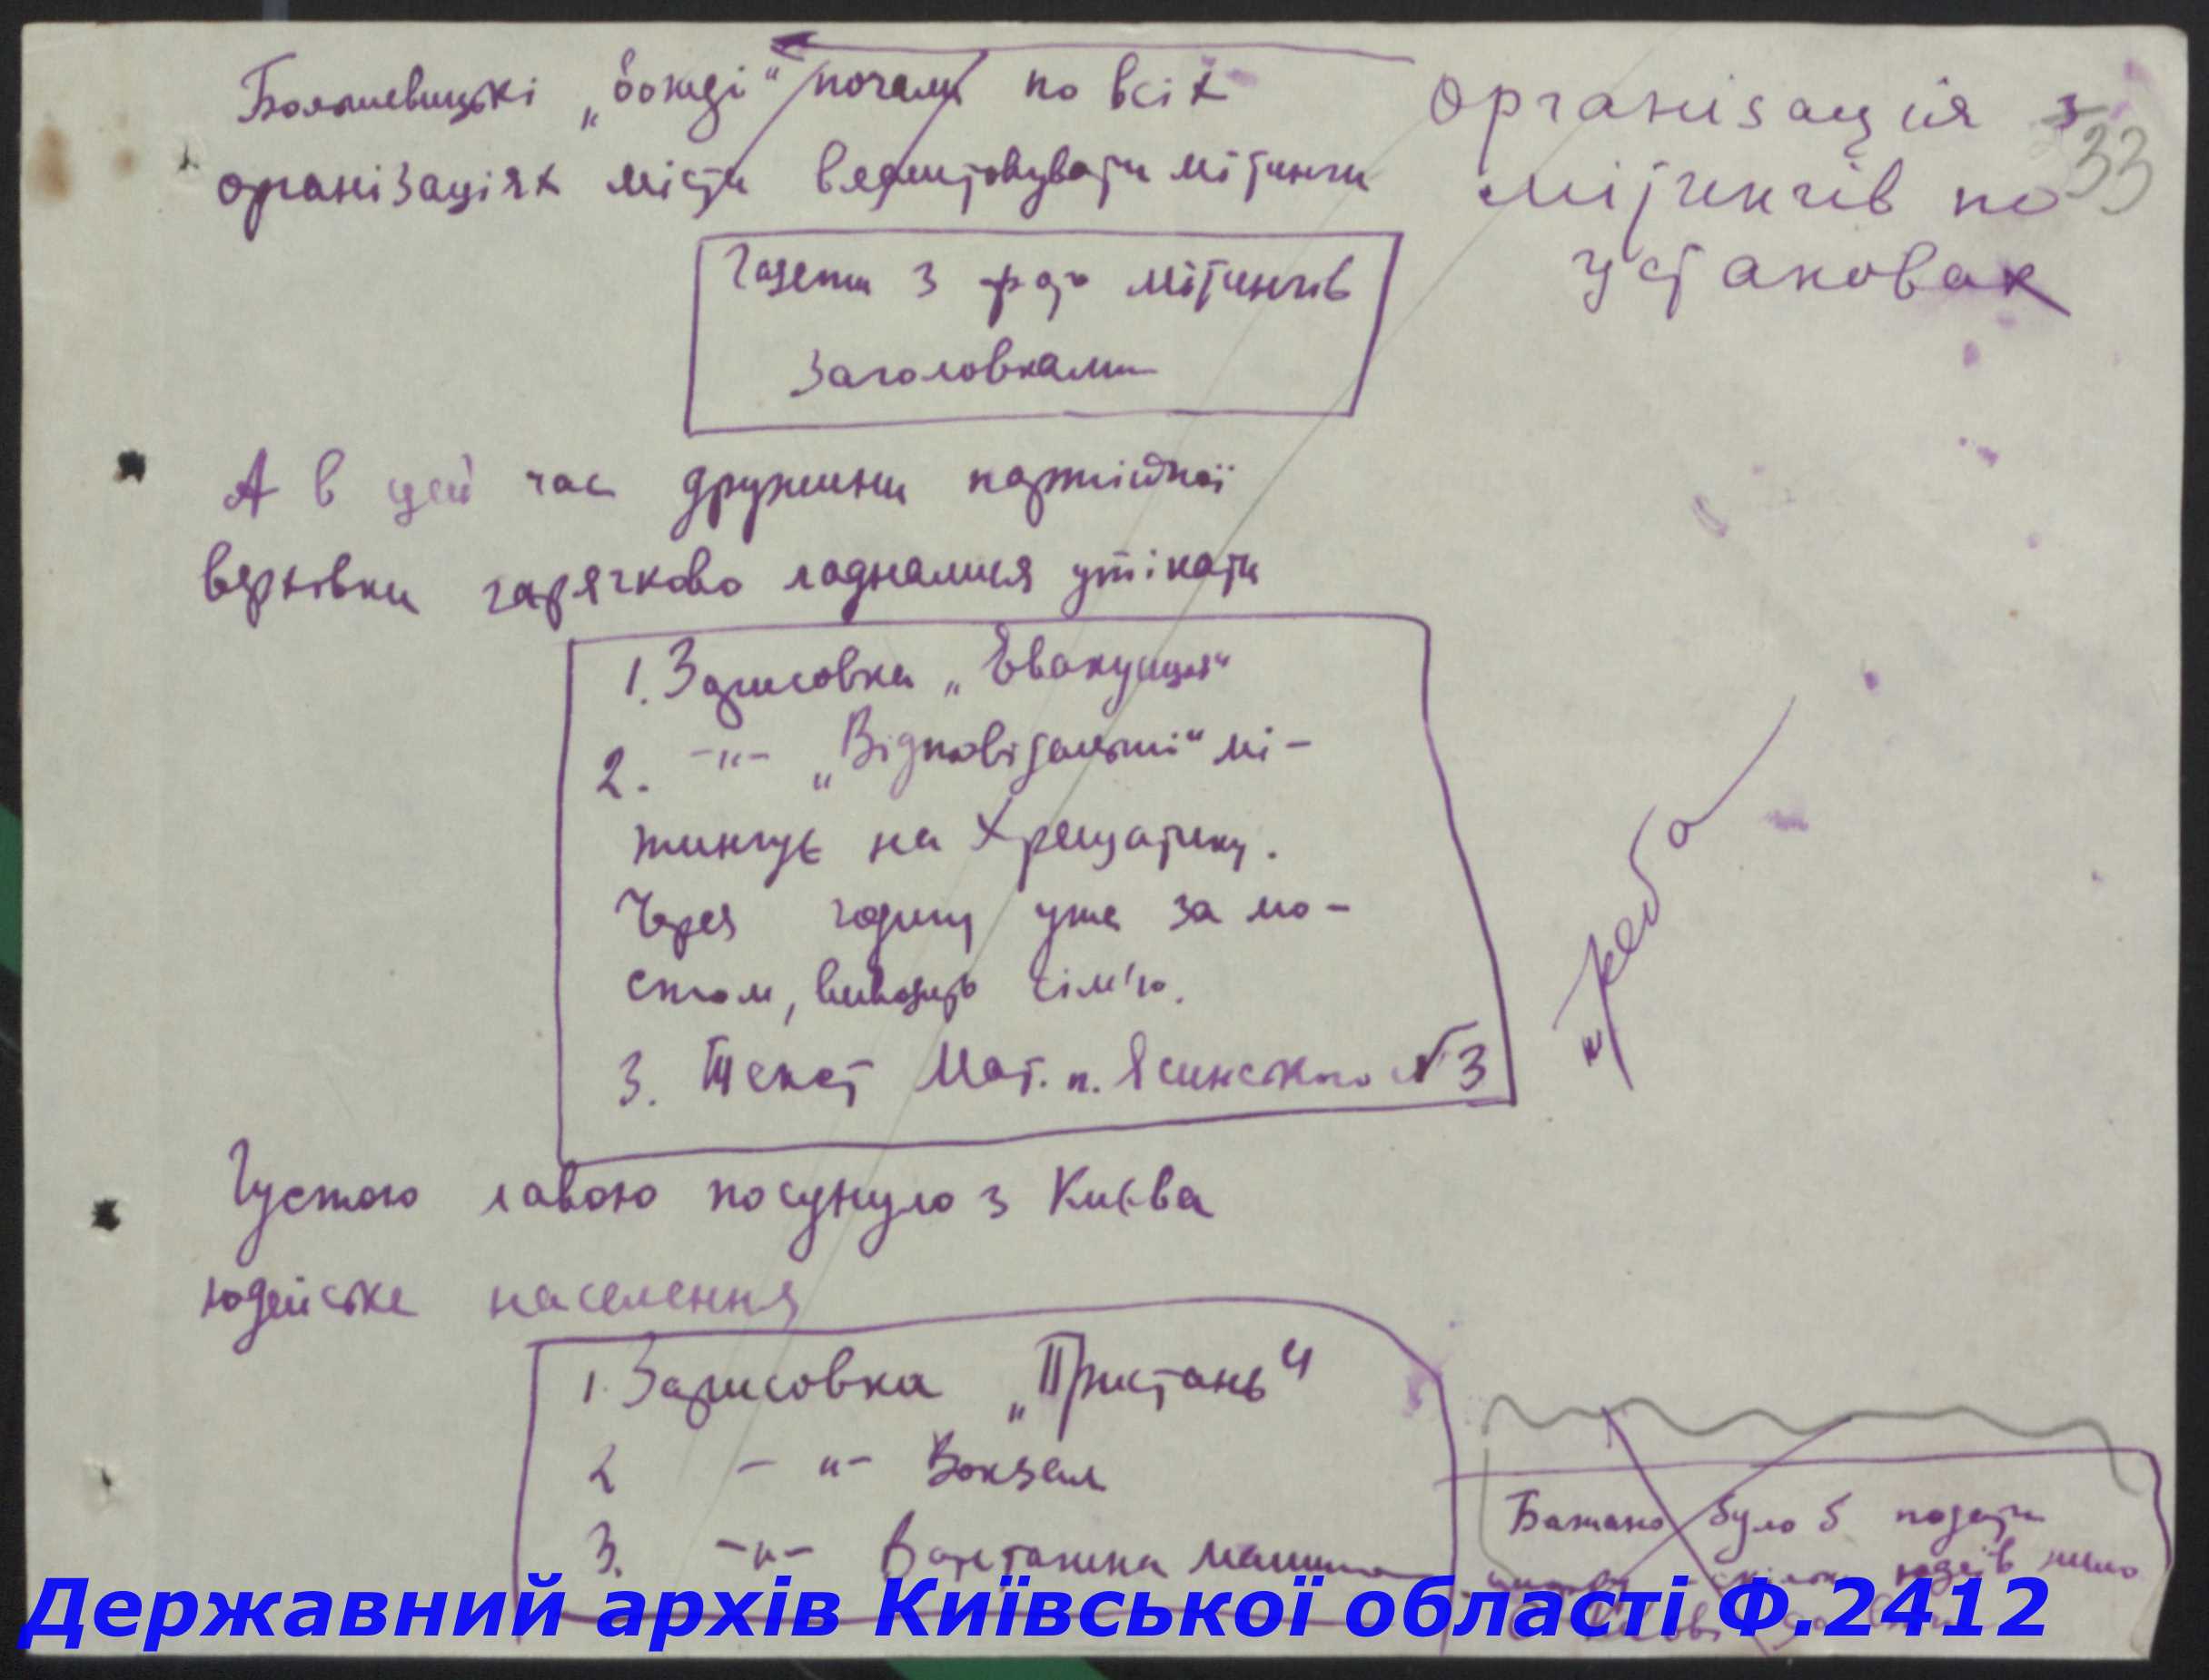 Большевицькі „вожді“ почали по всіх
організаціях міста влаштовувати мітинги
Організація з
мітингів по
установах
33
Газети з
мітингів
заголовками
А в цей час дружини партійної
верхівки гарячково ладналися утікати
1. Зарисовка „Евакуация“
2. -„- „Відповідальні“ мі-
тингує на Хрещатику.
Через годину уже за мо-
стом, вивозить сім'ю.
3. Текст Мат. п. Ясинського №3
треба
Густою лавою посунуло з Києва
юдейське населення
1. Зарисовка „Пристань“
2 -„- Вокзал
3. -„- Вантажна машина
Бажано було б подати
скільки юдеїв жило
Державний архів Київської області Ф.2412